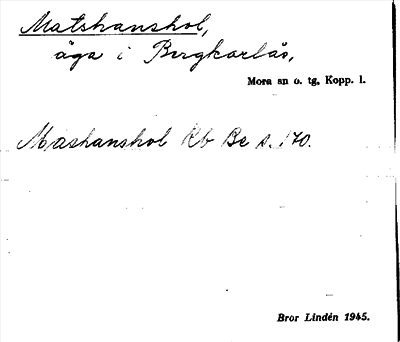 Matshanshol,
äga i Bergkarlås,
Mora sn o. tg, Kopp. l.
Mashanshol Rb Be s. 170.
Bror Lindén 1945.